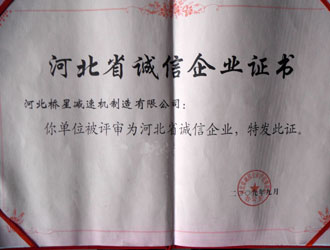 河北省诚信企业证书
河北桥星减速机制造有限公司：
你单位被评审为河北省诚信企业，特发此证。